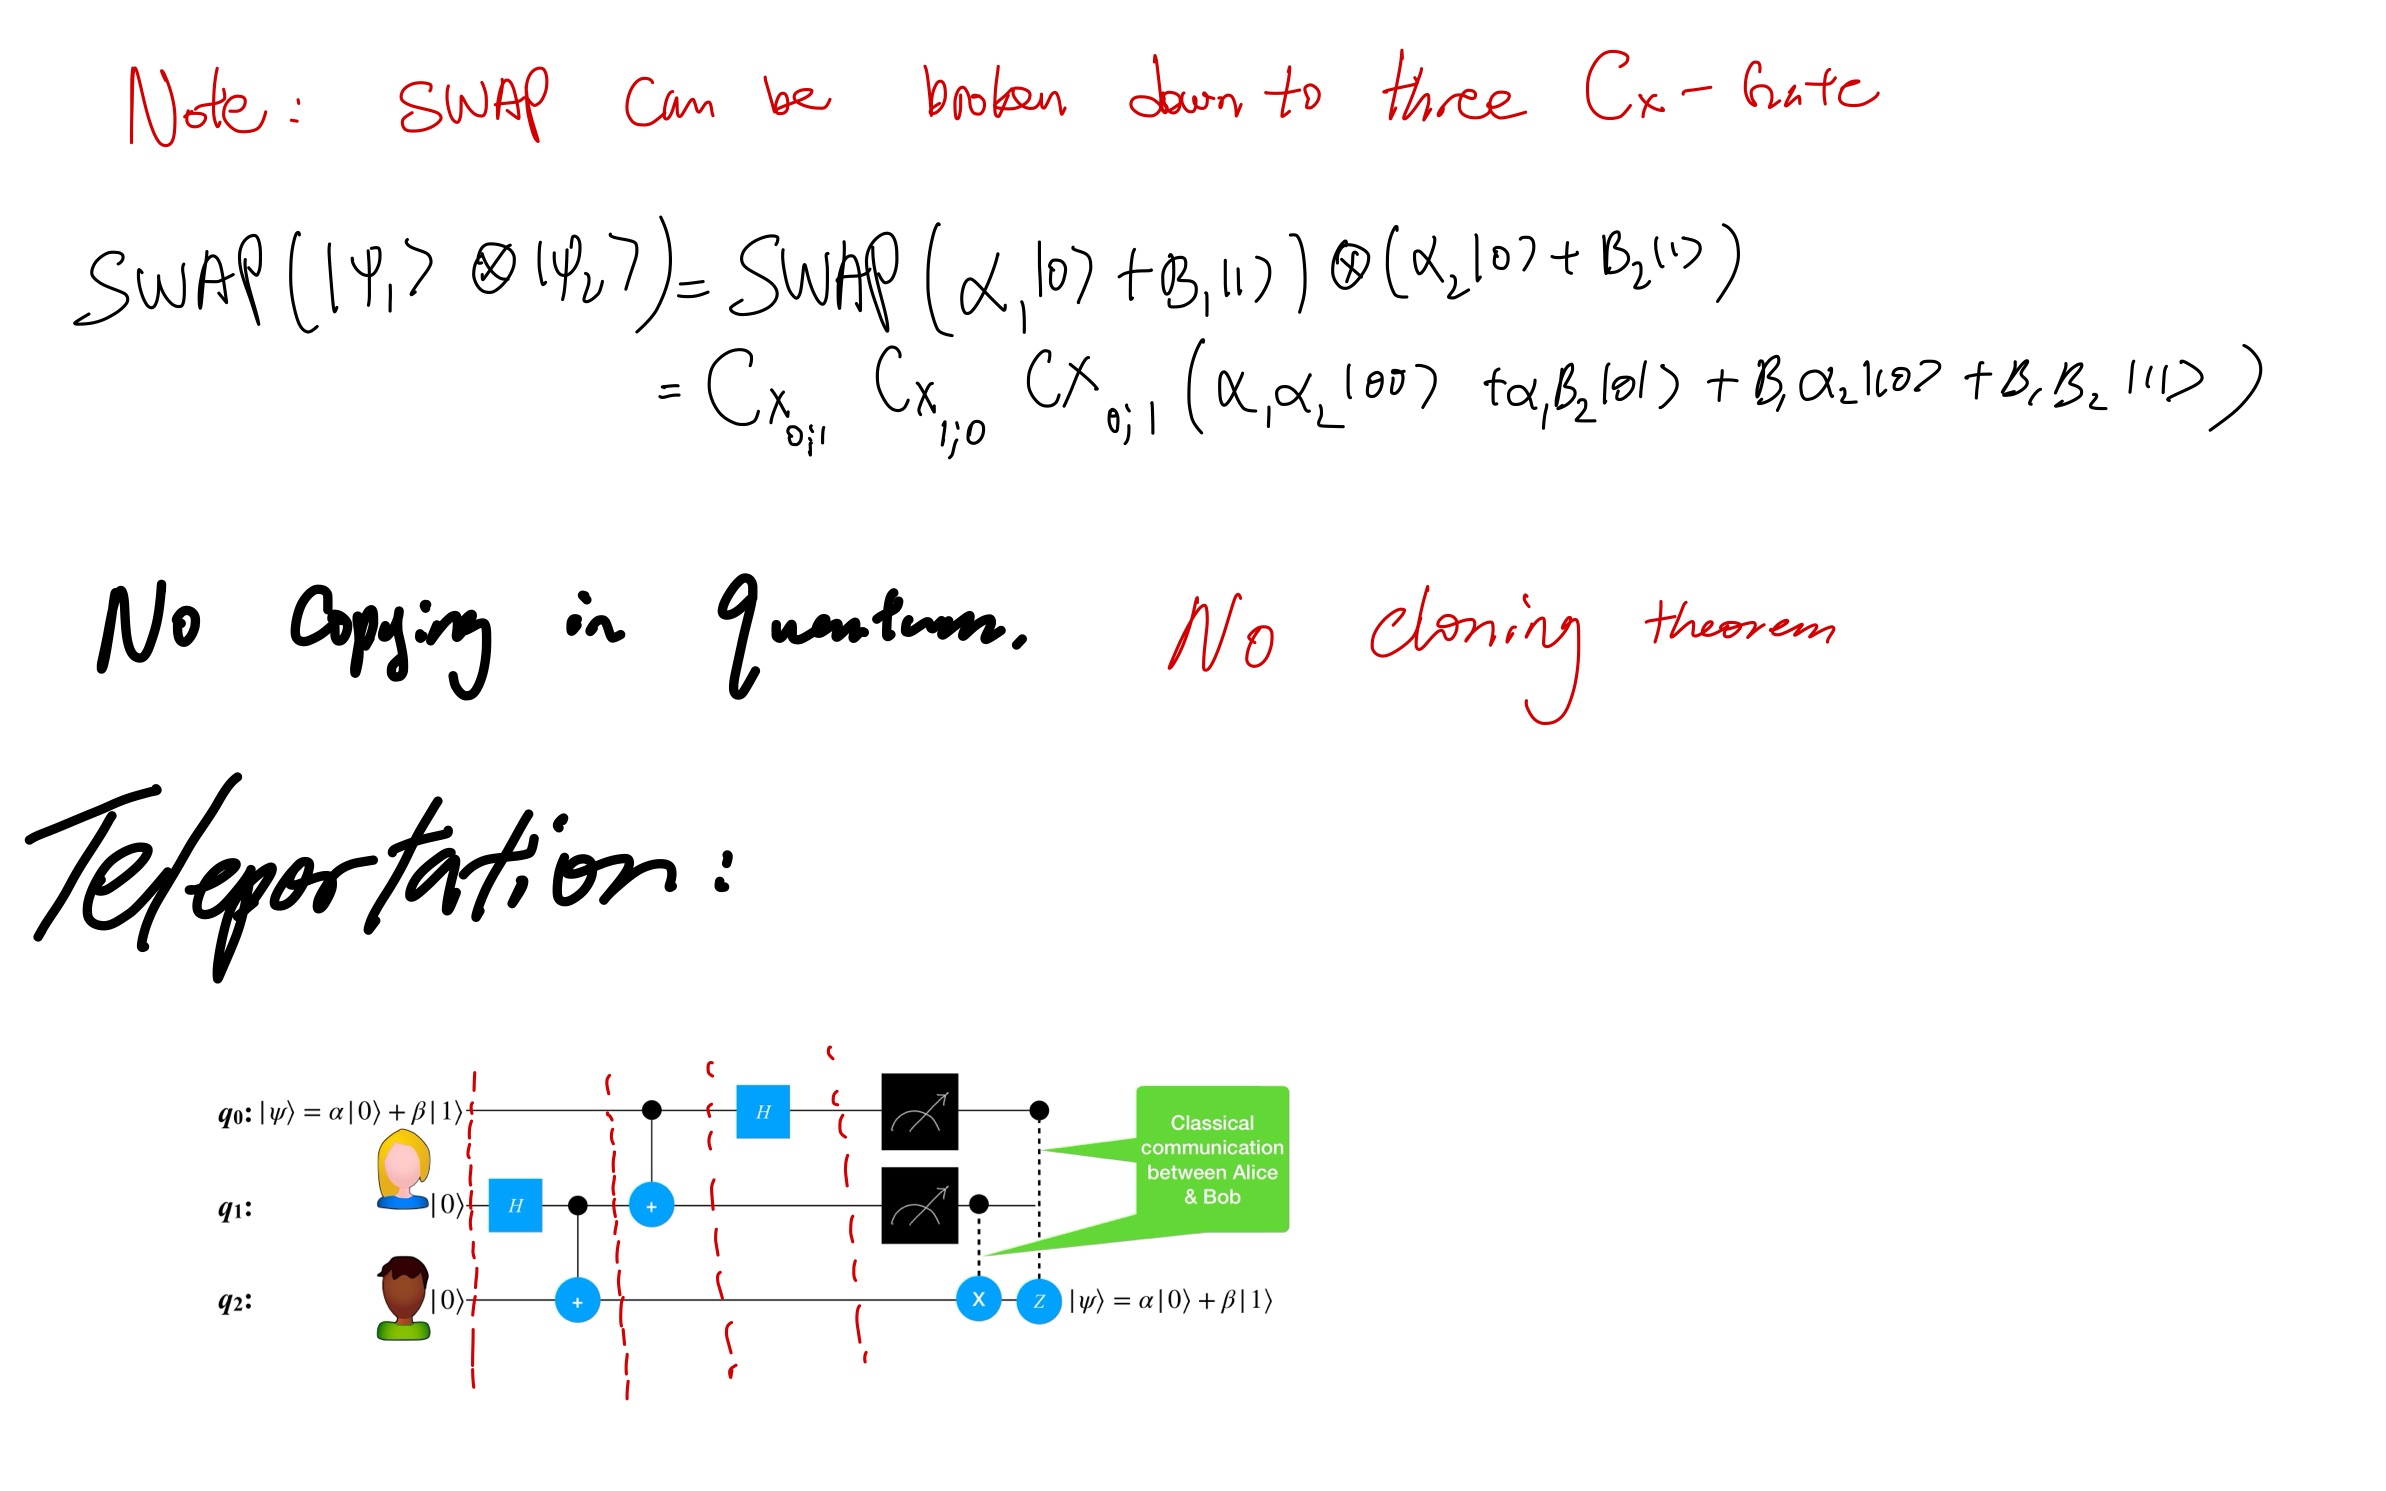 Note: SWAP can be broken down to three Cx-Gate
SWAP(|ψ₁> ⊗ |ψ₂>) = SWAP(α₁|0> + β₁|1>) ⊗ (α₂|0> + β₂|1>)
= Cx₀;₁ Cx₁;₀ CX₀;₁ (α₁α₂|00> + α₁β₂|01> + β₁α₂|10> + β₁β₂|11>)
No Copying in quantum. No cloning theorem
Teleportation:
q0: |ψ⟩ = α|0⟩ + β|1⟩ H
Classical communication between Alice & Bob
q1: |0⟩ H +
q2: |0⟩ + X Z |ψ⟩ = α|0⟩ + β|1⟩